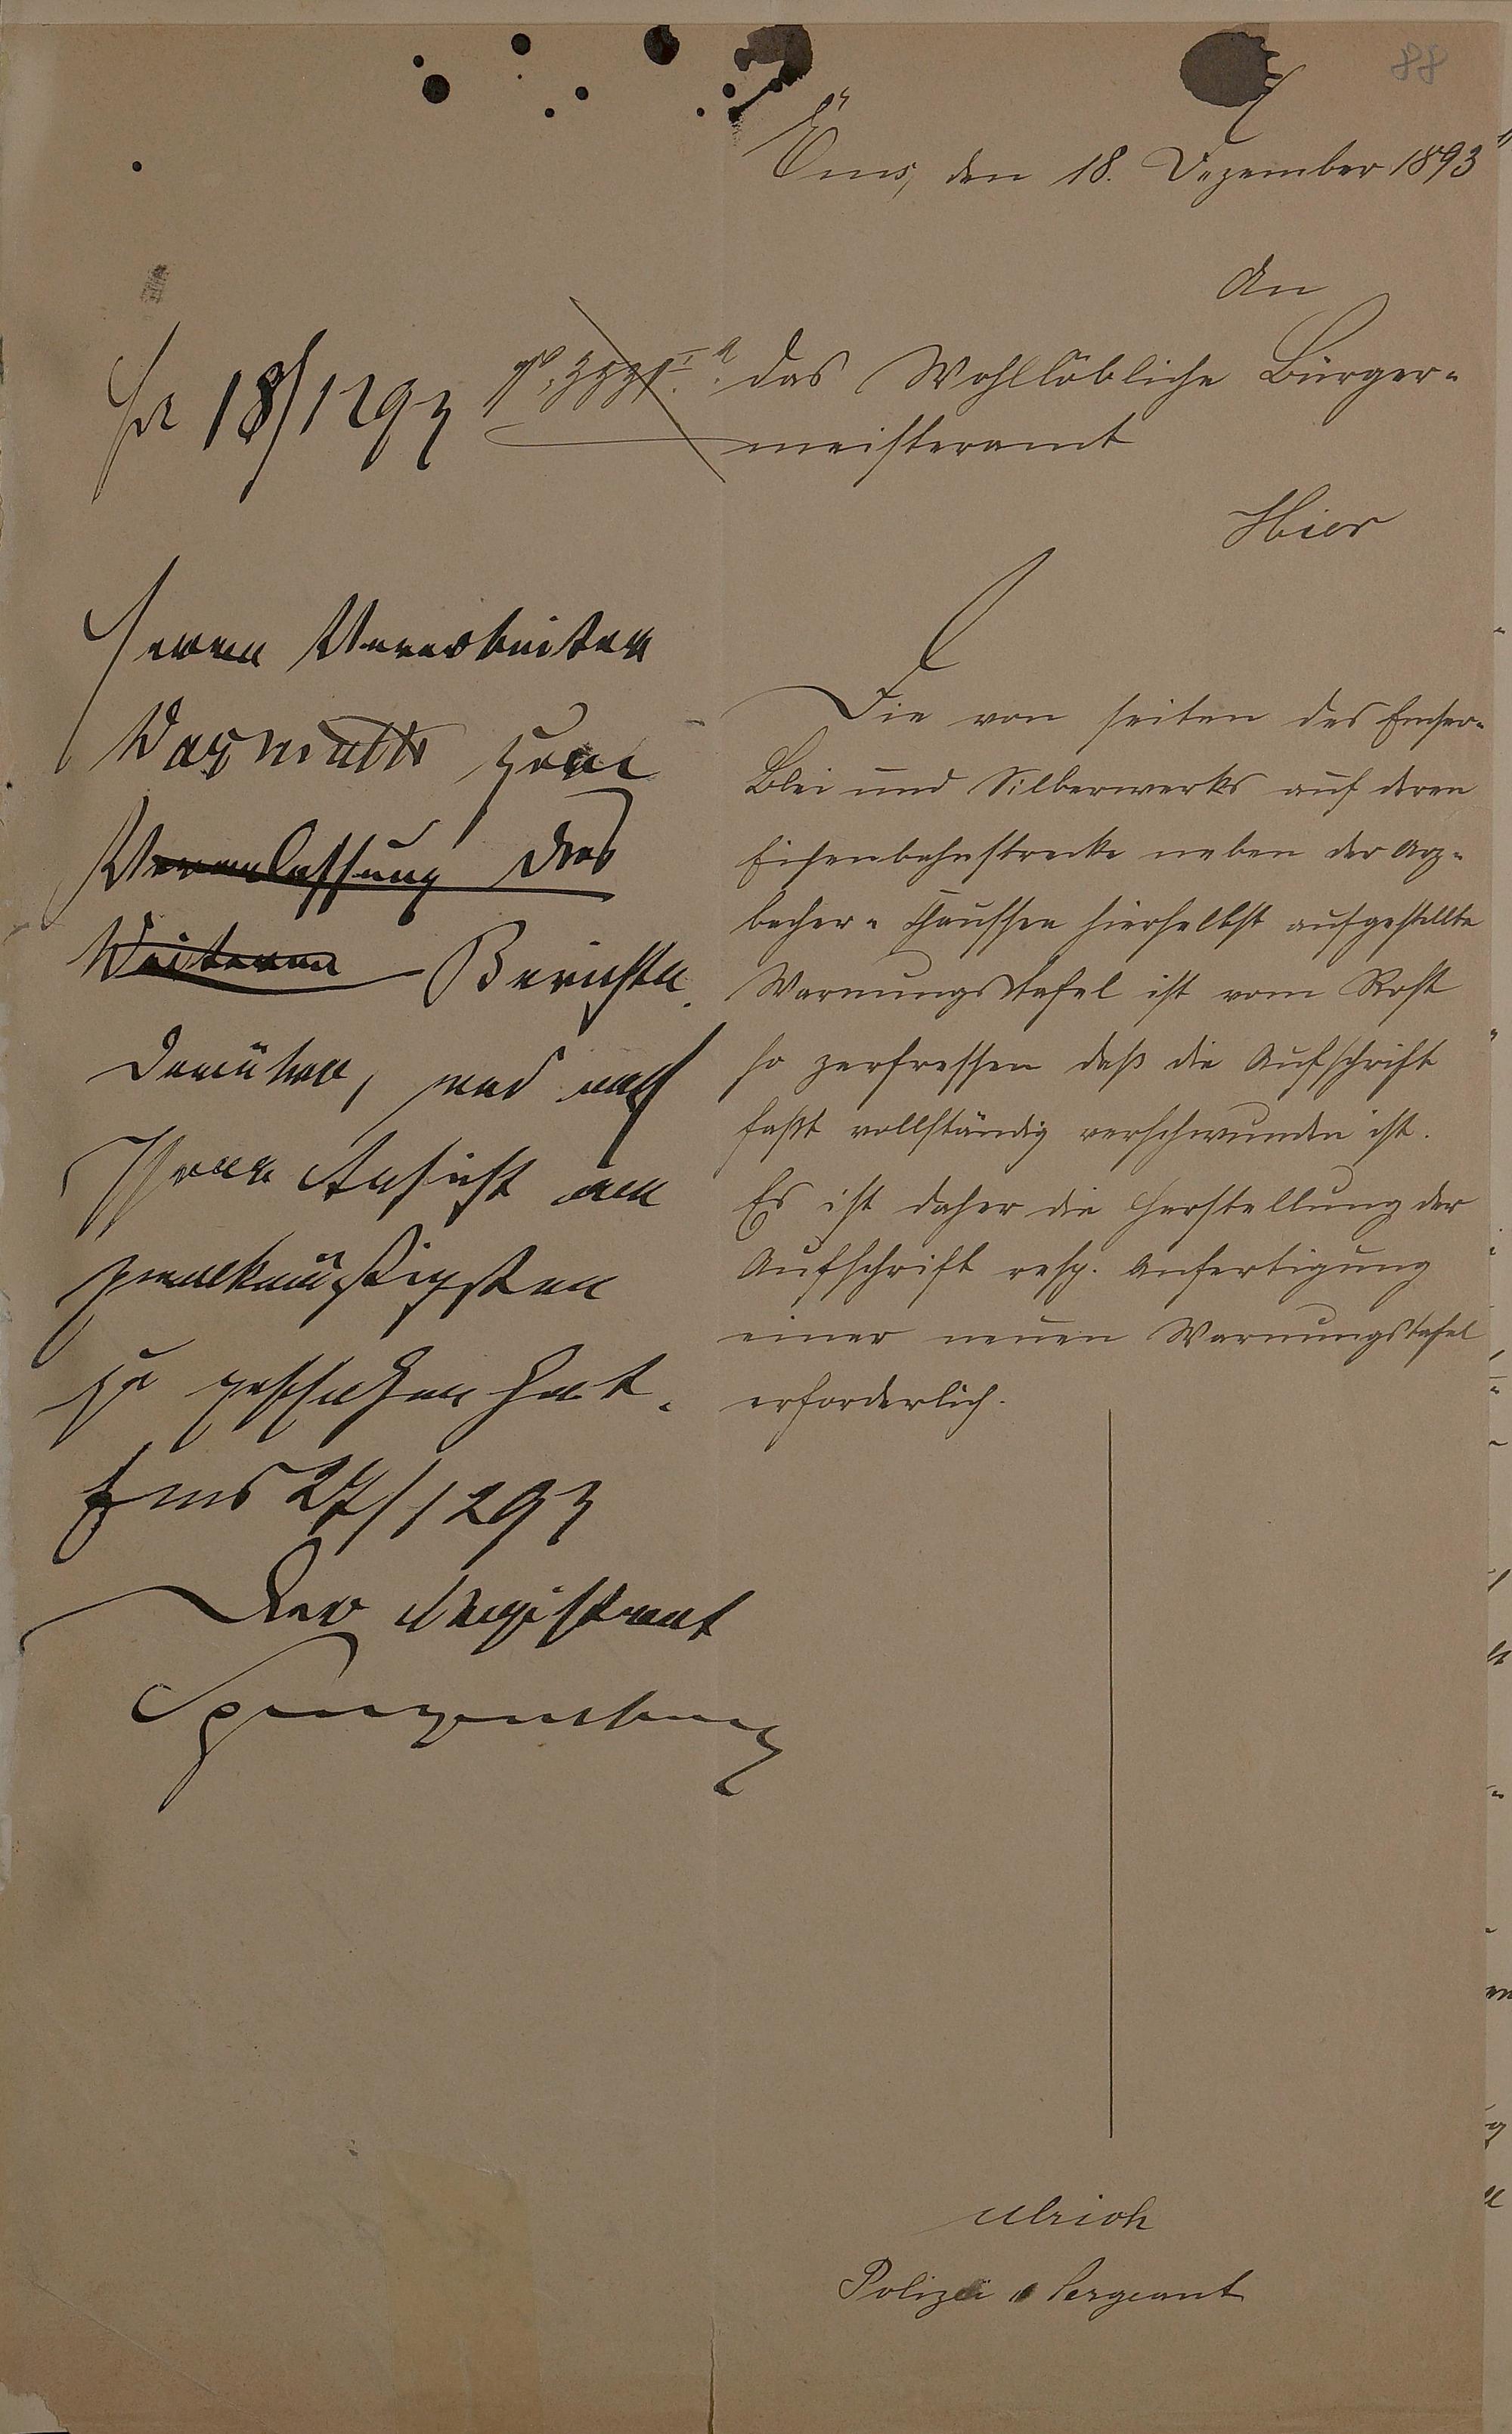 88
Ems, den 18. Dezember 1893
An
das Wohllöbliche Bürger-
meisteramt
Hier
Die von seiten des Emser-
Blei und Silberwerks auf deren
Eisenbahnstrecke neben der Arz-
bacher-Chaussee hierselbst aufgestellte
Warnungstafel ist vom Rost
so zerfressen daß die Aufschrift
faßt vollständig verschwunden ist.
Es ist daher die Herstellung der
Aufschrift resp. Anfertigung
einer neuen Warnungstafel
erforderlich.
Ulrich
Polizei Sergeant
Pr 18/1293
Herrn
zum
Veranlassung des
Weiteren Berichte
darüber, was nach
Ihrer Ansicht am
zweckmäßigsten
zu geschehen hat.
Ems 27/1293
Der Magistrat
Spangenberg